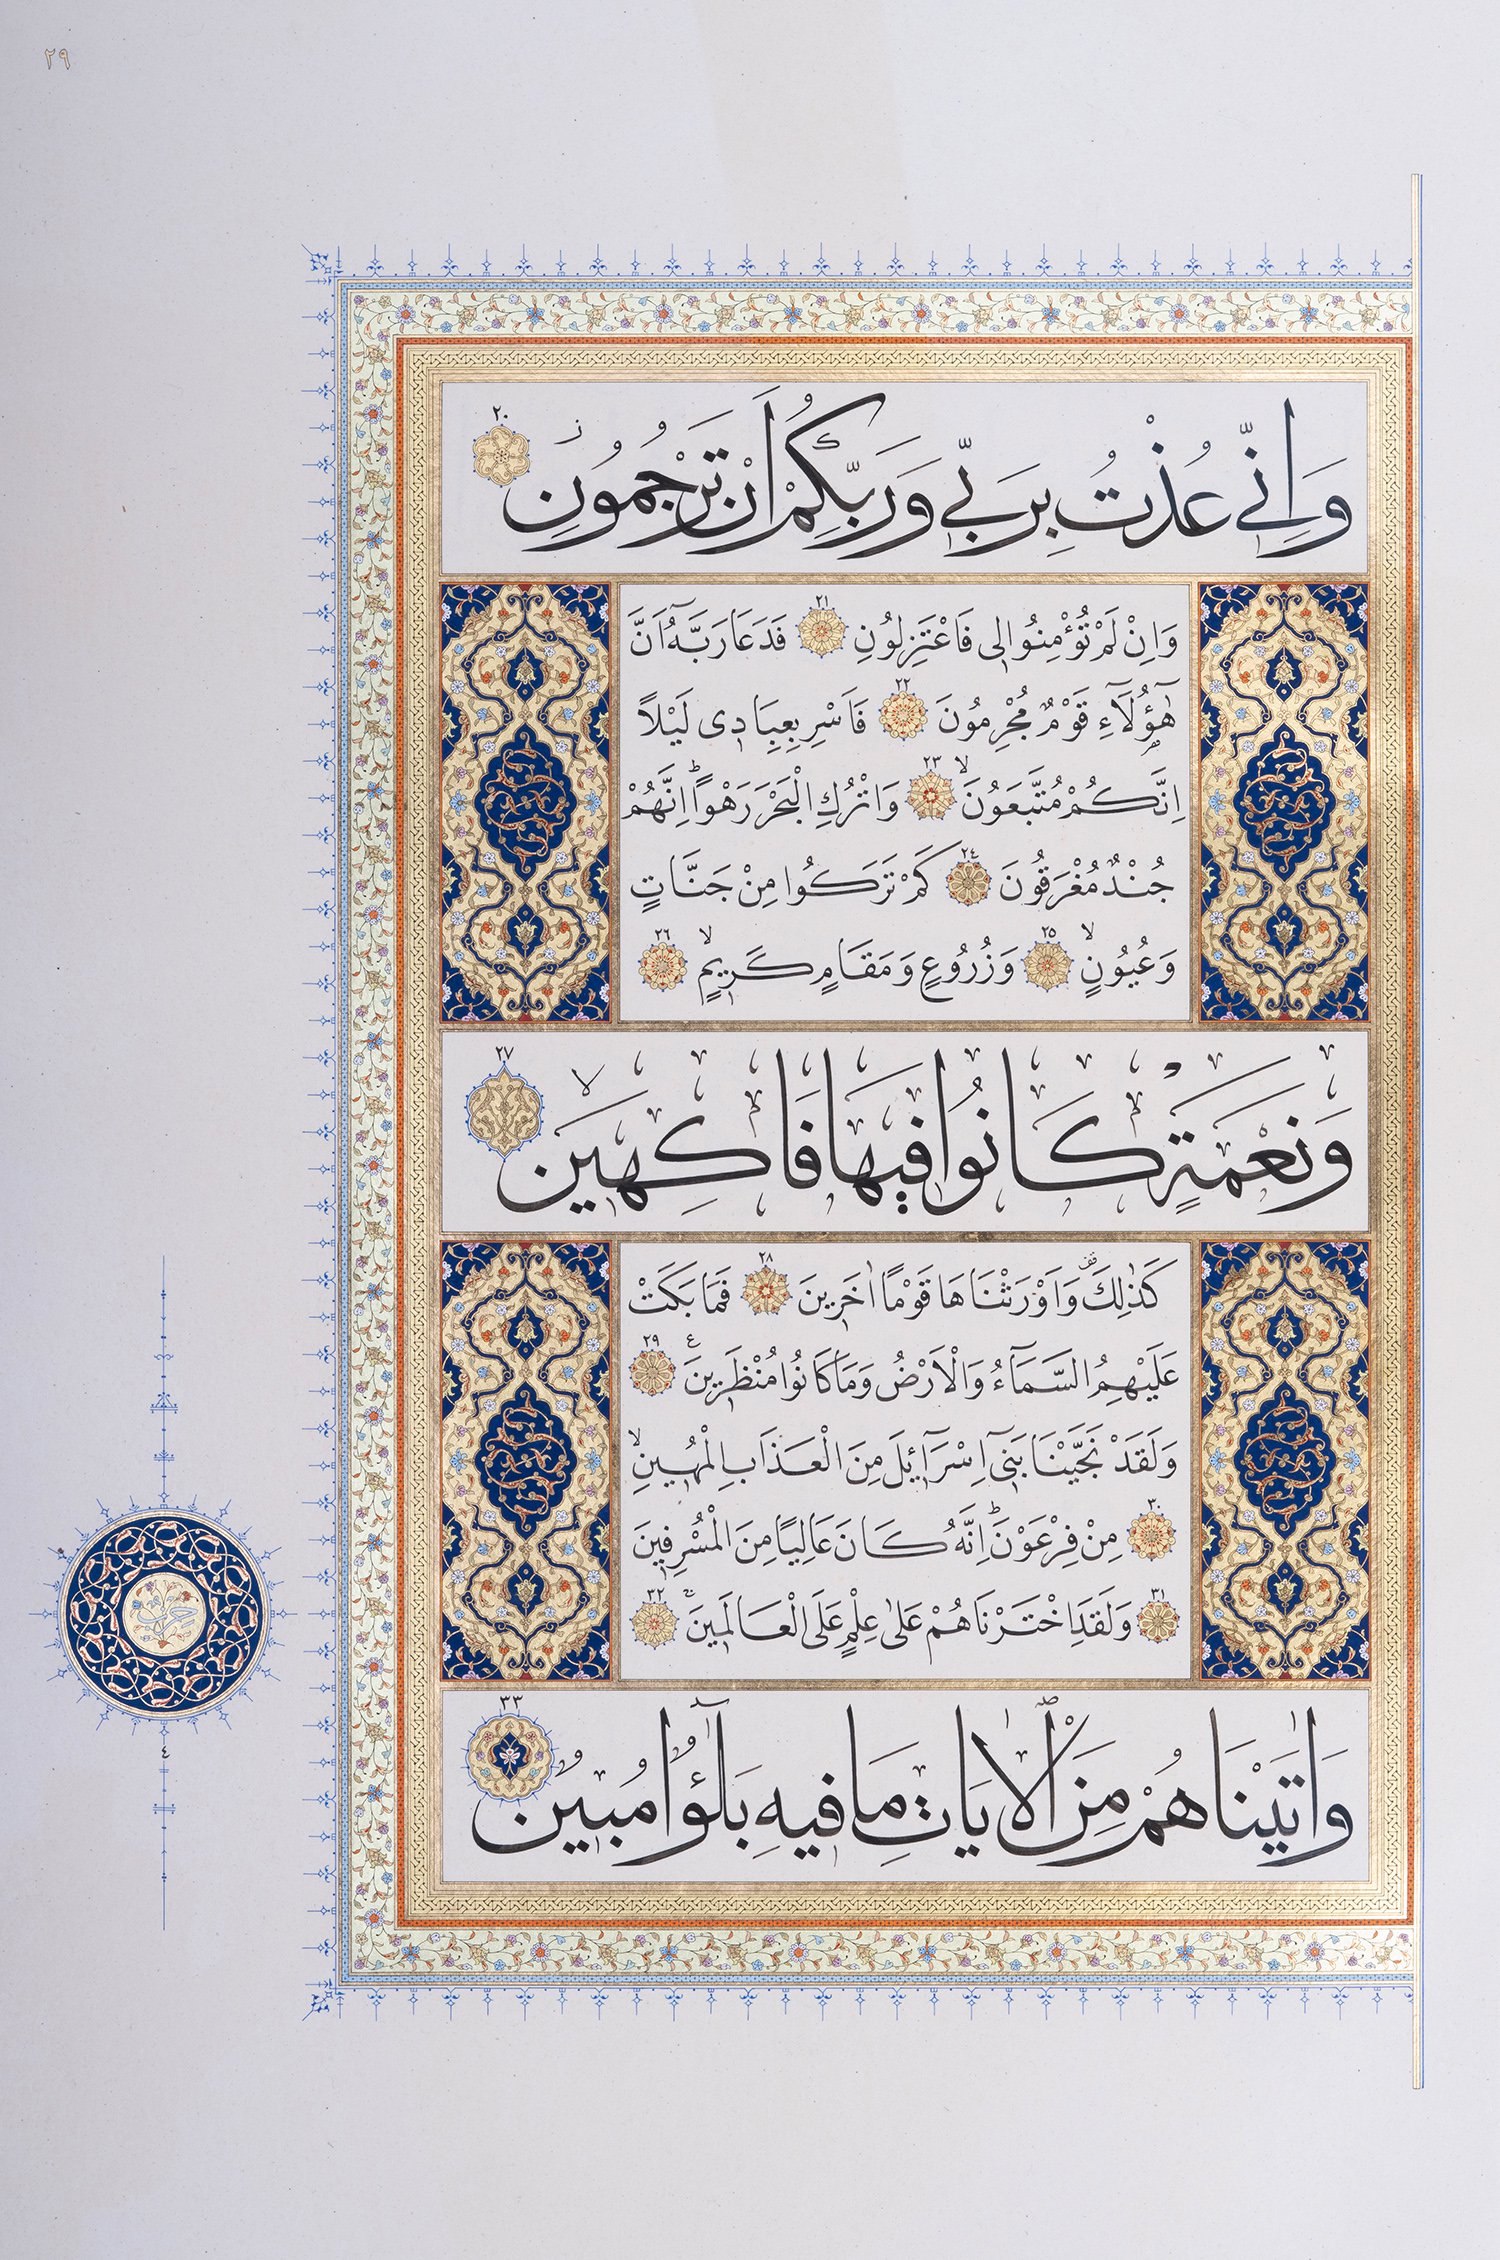 ٢٩
وَاِنّ۪ي عُذْتُ بِرَبّ۪ي وَرَبِّكُمْ اَنْ تَرْجُمُونِ ز ٢٠
وَاِنْ لَمْ تُؤْمِنُوا ل۪ي فَاعْتَزِلُونِ ٢١ فَدَعَا رَبَّهُٓ اَنَّ
هٰٓؤُ۬لَٓاءِ قَوْمٌ مُجْرِمُونَ ٢٢ فَاَسْرِ بِعِبَاد۪ي لَيْلًا
اِنَّكُمْ مُتَّبَعُونَۙ ٢٣ وَاتْرُكِ الْبَحْرَ رَهْوًاۜ اِنَّهُمْ
جُنْدٌ مُغْرَقُونَ ٢٤ كَمْ تَرَكُوا مِنْ جَنَّاتٍ
وَعُيُونٍۙ ٢٥ وَزُرُوعٍ وَمَقَامٍ كَر۪يمٍۙ ٢٦
وَنَعْمَةٍ كَانُوا ف۪يهَا فَاكِه۪ينَۙ ٢٧
كَذٰلِكَ۠ وَاَوْرَثْنَاهَا قَوْمًا اٰخَر۪ينَ ٢٨ فَمَا بَكَتْ
عَلَيْهِمُ السَّمَٓاءُ وَالْاَرْضُ وَمَا كَانُوا مُنْظَر۪ينَ ع ٢٩
وَلَقَدْ نَجَّيْنَا بَن۪ٓي اِسْرَٓاء۪يلَ مِنَ الْعَذَابِ الْمُه۪ينِۙ
٣٠ مِنْ فِرْعَوْنَۜ اِنَّهُ كَانَ عَالِيًا مِنَ الْمُسْرِف۪ينَ
٣١ وَلَقَدِ اخْتَرْنَاهُمْ عَلٰى عِلْمٍ عَلَى الْعَالَم۪ينَۚ ٣٢
وَاٰتَيْنَاهُمْ مِنَ الْاٰيَاتِ مَا ف۪يهِ بَلٰٓؤٌ۬ا مُب۪ينٌ ٣٣
حزب
٤